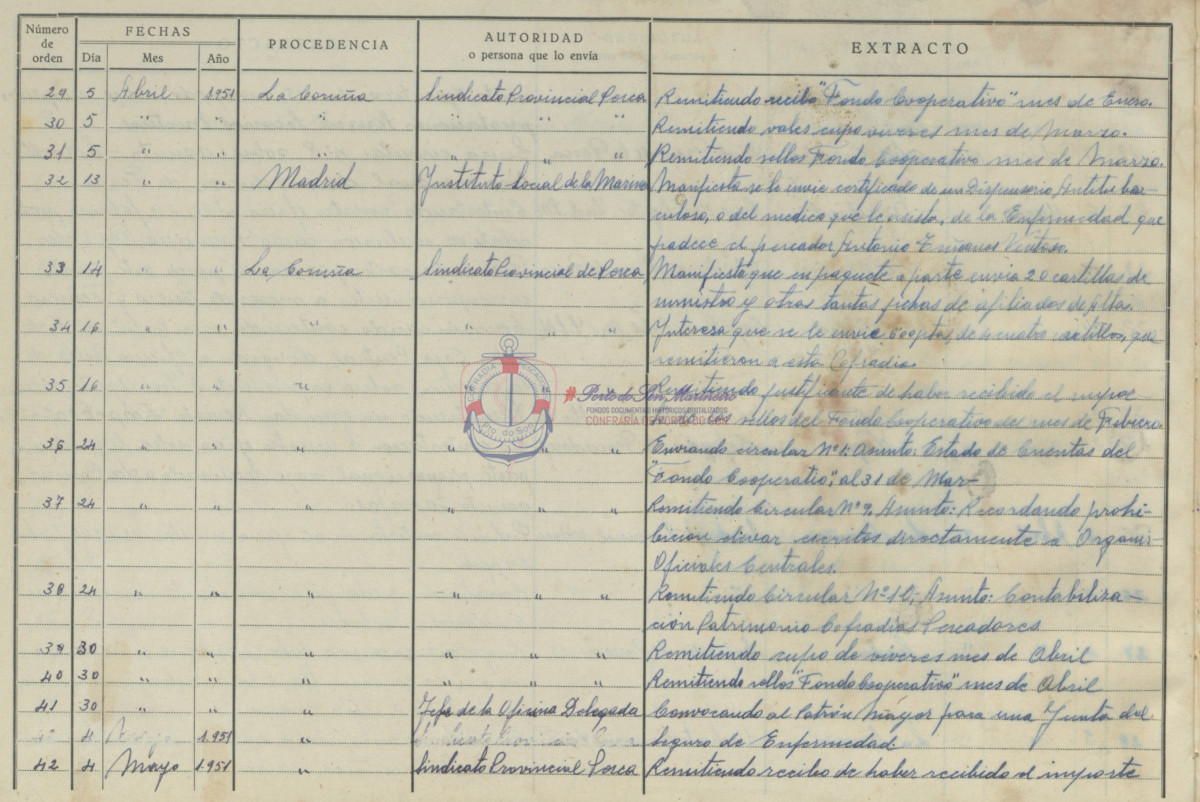 Número de orden FECHAS Día Mes Año PROCEDENCIA AUTORIDAD o persona que lo envía EXTRACTO
29 5 Abril 1.951 La Coruña Sindicato Provincial Pesca Remitiendo recibo "Fondo Cooperativo" mes de Enero.
30 5 " " " " " " Remitiendo vales cupo viveres mes de Marzo.
31 5 " " " " " " Remitiendo sellos Fondo Cooperativo mes de Marzo.
32 13 " " Madrid Instituto Social de la Marina Manifiesta se le envie certificado de un Dispensario Antitubar-
culoso, o del medico que le asista, de la Enfermedad que
padece el pescador Antonio
33 14 " " La Coruña Sindicato Provincial de Pesca Manifiesta que en paquete aparte envia 20 cartillas de
ministro y otras tantas fichas de afiliados de Alta.
34 16 " " " " " " Interesa que se le envie de cuatro que
remitieron a esta Cofradia.
35 16 " " " Remitiendo justificante de haber recibido el impor-
te de los sellos del Fondo Cooperativo del mes de Febrero.
36 24 " " " " " " Enviando circular Nº 1: Asunto: Estado de Cuentas del
"Fondo Cooperatio", al 31 de Mar-
37 24 " " " " " " Remitiendo Circular Nº 9. Asunto: Recordando prohi-
bicion elevar escritos directamente a Organis-
Oficiales Centrales.
38 24 " " " " " " Remitiendo Circular Nº 10,- Asunto: Contabiliza-
ción Patrimonio Cofradias Pescadores
39 30 " " " " " " Remitiendo cupo de viveres mes de Abril
40 30 " " " " " " Remitiendo sellos "Fondo Cooperativo" mes de Abril
41 30 " " " Jefe de la Oficina Delegada Convocando al Patrón Mayor para una Junta del
4 1.951 " Sindicato Provincial Pesca Seguro de Enfermedad
42 4 Mayo 1.951 " Sindicato Provincial Pesca Remitiendo recibo de haber recibido el importe
COFRADIA PESCADORES
Pto. do Son
# Porto do Son Marineiro
FONDOS DOCUMENTAIS HISTÓRICOS DIGITALIZADOS
CONFRARÍA DE PORTO DO SON